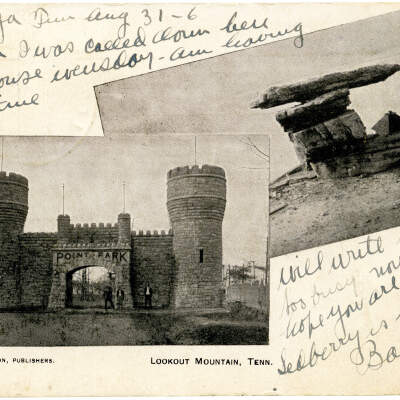 Ten Aug 31-6
I was called down here
wensday - am having
time
POINT PARK
ON, PUBLISHERS.
LOOKOUT MOUNTAIN, TENN.
Will write
too busy now
hope you are
Seeberry is